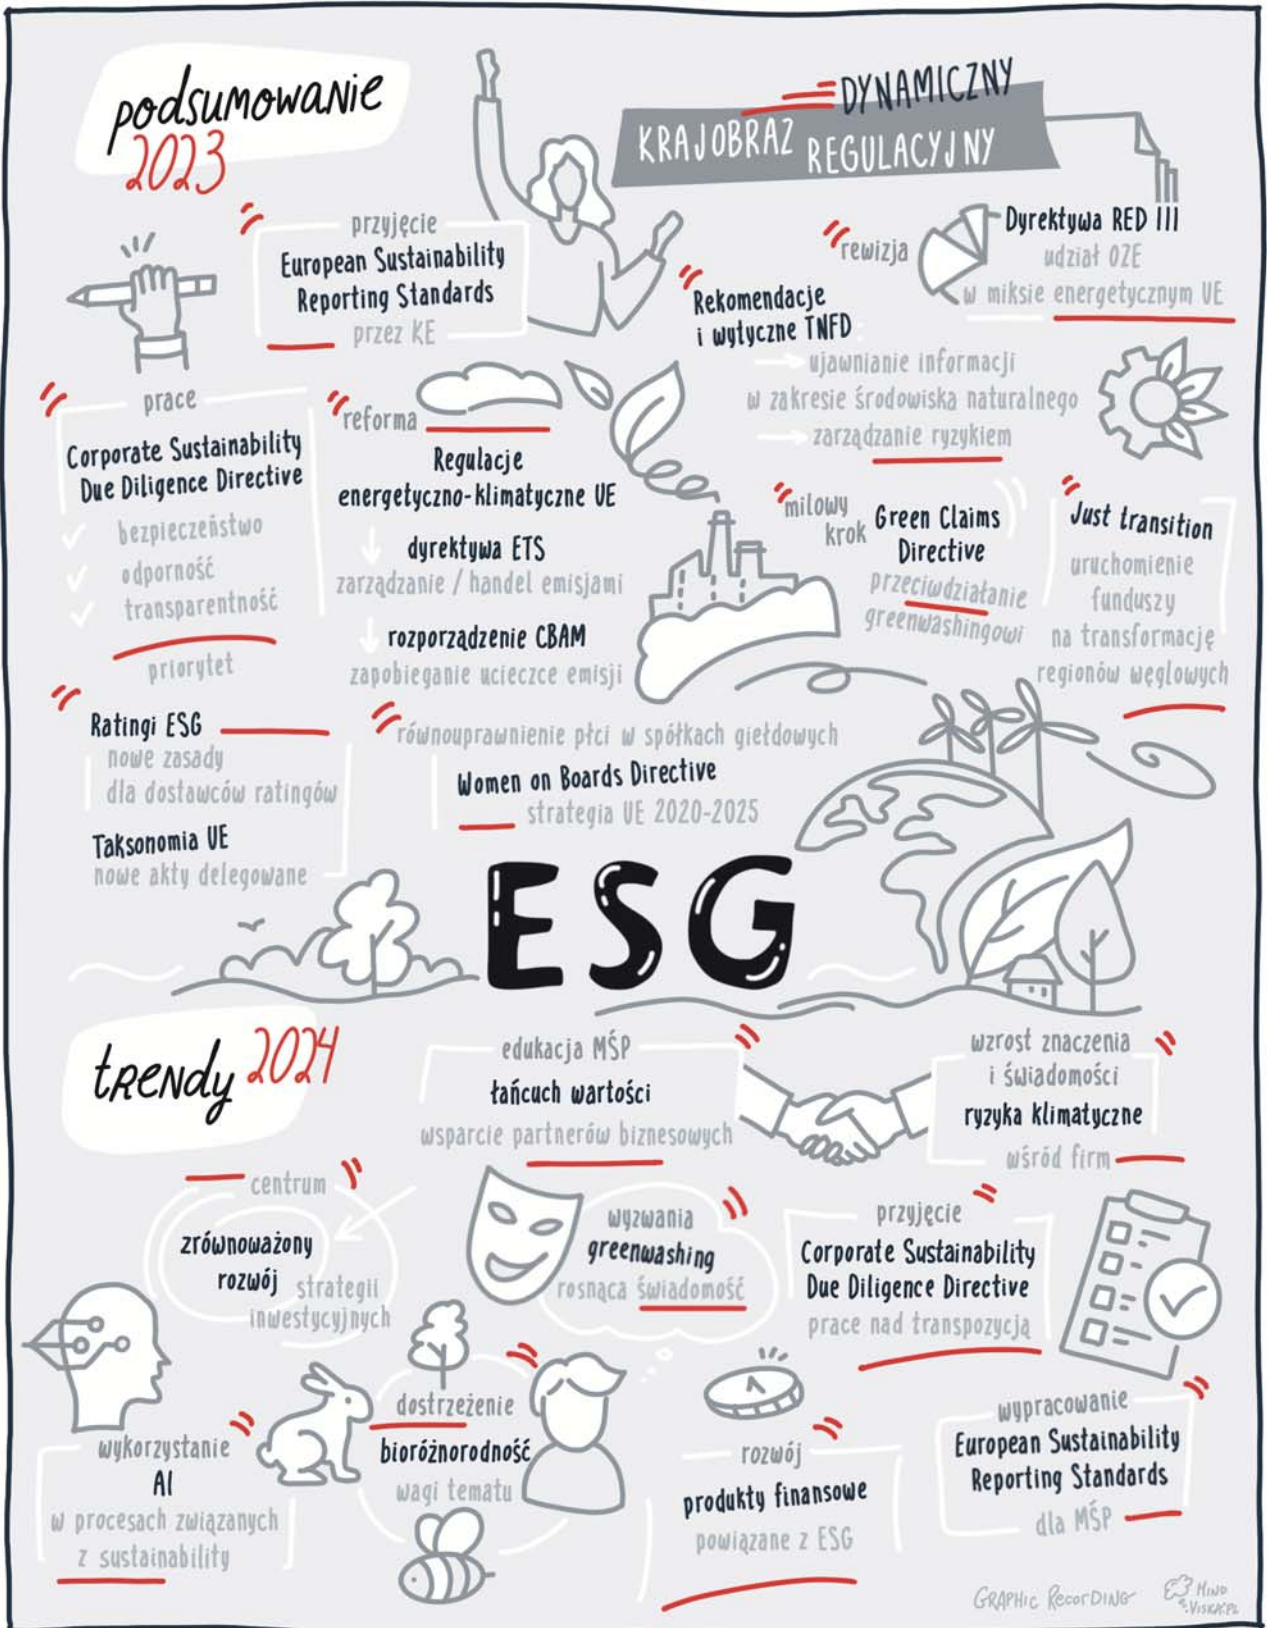 podsumowanie
2023
DYNAMICZNY
KRAJOBRAZ REGULACYJNY
przyjęcie
European Sustainability
Reporting Standards
przez KE
rewizja
Dyrektywa RED III
udział OZE
w miksie energetycznym UE
Rekomendacje
i wytyczne TNFD
ujawnianie informacji
w zakresie środowiska naturalnego
zarządzanie ryzykiem
prace
Corporate Sustainability
Due Diligence Directive
bezpieczeństwo
odporność
transparentność
priorytet
reforma
Regulacje
energetyczno-klimatyczne UE
dyrektywa ETS
zarządzanie / handel emisjami
rozporządzenie CBAM
zapobieganie ucieczce emisji
milowy
krok
Green Claims
Directive
przeciwdziałanie
greenwashingowi
Just transition
uruchomienie
funduszy
na transformację
regionów węglowych
Ratingi ESG
nowe zasady
dla dostawców ratingów
Taksonomia UE
nowe akty delegowane
równouprawnienie płci w spółkach giełdowych
Women on Boards Directive
strategia UE 2020-2025
ESG
trendy 2024
edukacja MŚP
łańcuch wartości
wsparcie partnerów biznesowych
wzrost znaczenia
i świadomości
ryzyka klimatyczne
wśród firm
centrum
zrównoważony
rozwój
strategii
inwestycyjnych
wyzwania
greenwashing
rosnąca świadomość
przyjęcie
Corporate Sustainability
Due Diligence Directive
prace nad transpozycją
wykorzystanie
AI
w procesach związanych
z sustainability
dostrzeżenie
bioróżnorodność
wagi tematu
rozwój
produkty finansowe
powiązane z ESG
wypracowanie
European Sustainability
Reporting Standards
dla MŚP
GRAPHIC RECORDING
MIND
VISKA.PL